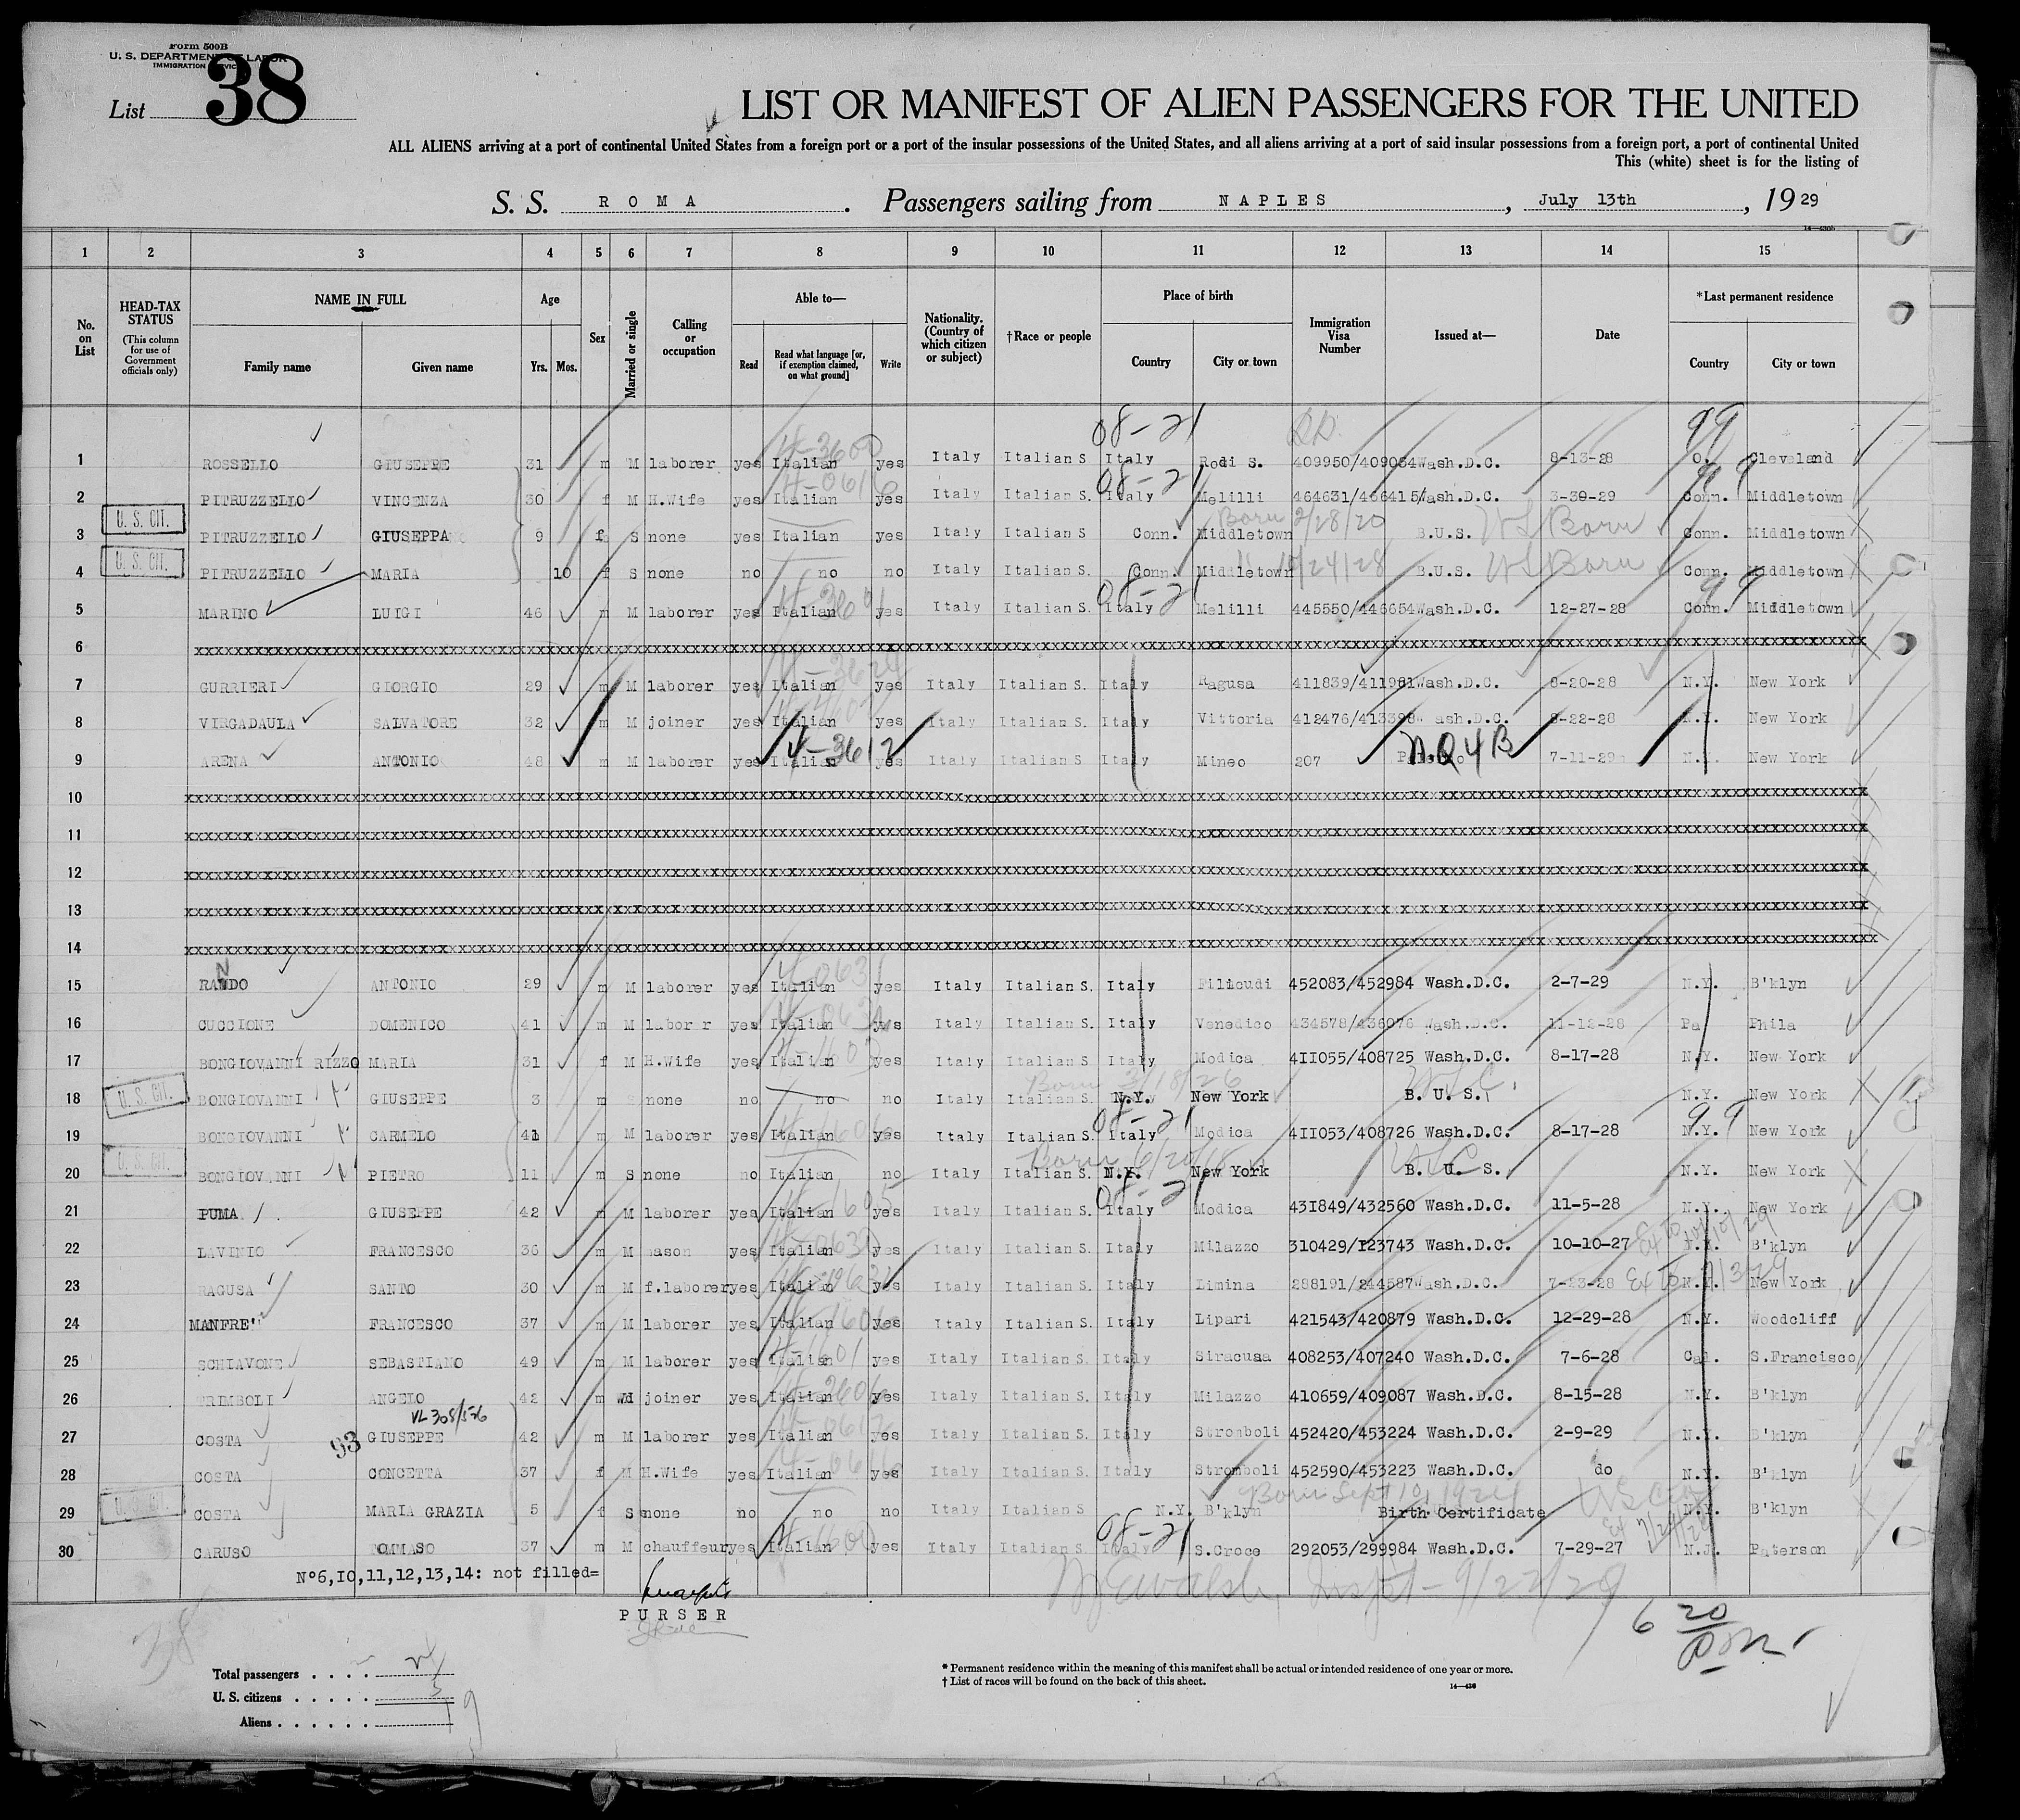 Form 500B
U. S. DEPARTMENT OF LABOR
IMMIGRATION SERVICE
List 38
LIST OR MANIFEST OF ALIEN PASSENGERS FOR THE UNITED
ALL ALIENS arriving at a port of continental United States from a foreign port or a port of the insular possessions of the United States, and all aliens arriving at a port of said insular possessions from a foreign port, a port of continental United
This (white) sheet is for the listing of
S. S. ROMA. Passengers sailing from NAPLES, July 13th, 19 29
14—430b
1 2 3 4 5 6 7 8 9 10 11 12 13 14 15
No. on List
HEAD-TAX STATUS (This column for use of Government officials only)
NAME IN FULL Family name Given name
Age Yrs. Mos.
Sex
Married or single
Calling or occupation
Able to— Read Read what language [or, if exemption claimed, on what ground] Write
Nationality. (Country of which citizen or subject)
†Race or people
Place of birth Country City or town
Immigration Visa Number
Issued at—
Date
*Last permanent residence Country City or town
08-21 99
1 ROSSELLO GIUSEPPE 31 m M laborer yes Italian yes Italy Italian S Italy Rodi S. 409950/409054 Wash.D.C. 8-13-28 O. Cleveland
4-3600
08-21 99
2 PITRUZZELLO VINCENZA 30 f M H.Wife yes Italian yes Italy Italian S. Italy Melilli 464631/466415 Wash.D.C. 3-30-29 Conn. Middletown
U. S. CIT. Born 2/28/20
3 PITRUZZELLO GIUSEPPA 9 f S none yes Italian yes Italy Italian S Conn. Middletown B.U.S. US Born Conn. Middletown
U. S. CIT. 10/24/28
4 PITRUZZELLO MARIA 10 f S none no no no Italy Italian S. Conn. Middletown B.U.S. US Born Conn. Middletown
08-21 99
5 MARINO LUIGI 46 m M laborer yes Italian yes Italy Italian S. Italy Melilli 445550/446654 Wash.D.C. 12-27-28 Conn. Middletown
6 xxxxxxxxxxxxxxxxxxxx
7 GURRIERI GIORGIO 29 m M laborer yes Italian yes Italy Italian S. Italy Ragusa 411839/411981 Wash.D.C. 8-20-28 N.Y. New York
8 VIRGADAULA SALVATORE 32 m M joiner yes Italian yes Italy Italian S. Italy Vittoria 412476/413398 ash.D.C. 8-22-28 N.Y. New York
4-3612 N.Q 4 B
9 ARENA ANTONIO 48 m M laborer yes Italian yes Italy Italian S Italy Mineo 207 7-11-29 N.Y. New York
10 xxxxxxxxxxxxxxxxxxxx
11 xxxxxxxxxxxxxxxxxxxx
12 xxxxxxxxxxxxxxxxxxxx
13 xxxxxxxxxxxxxxxxxxxx
14 xxxxxxxxxxxxxxxxxxxx
15 RANDO ANTONIO 29 m M laborer yes Italian yes Italy Italian S. Italy Filicudi 452083/452984 Wash.D.C. 2-7-29 N.Y. B'klyn
16 CUCCIONE DOMENICO 41 m M labor r yes Italian yes Italy Italian S. Italy Venedico 434578/436076 Wash.D.C. 11-12-28 Pa Phila
17 BONGIOVANNI RIZZO MARIA 31 f M H.Wife yes Italian yes Italy Italian S Italy Modica 4II055/408725 Wash.D.C. 8-17-28 N.Y. New York
U. S. CIT. Born 3/18/26
18 BONGIOVANNI GIUSEPPE 3 m S none no no no Italy Italian S. N.Y. New York B. U. S. N.Y. New York
08-21 99
19 BONGIOVANNI CARMELO 41 m M laborer yes Italian yes Italy Italian S. Italy Modica 4II053/408726 Wash.D.C. 8-17-28 N.Y. New York
U. S. CIT. Born
20 BONGIOV NNI PIETRO 11 m S none no Italian no Italy Italian S N.Y. New York B. U. S. N.Y. New York
08-21
21 PUMA GIUSEPPE 42 m M laborer yes Italian yes Italy Italian S. Italy Modica 431849/432560 Wash.D.C. 11-5-28 N.Y. New York
22 LAVINIO FRANCESCO 36 m M mason yes Italian yes Italy Italian S. Italy Milazzo 310429/123743 Wash.D.C. 10-10-27 N.Y. B'klyn
23 RAGUSA SANTO 30 m M f.laborer yes Italian yes Italy Italian S. Italy Limina 288191/244587 Wash.D.C. 7-23-28 N.Y. New York
24 MANFRE' FRANCESCO 37 m M laborer yes Italian yes Italy Italian S. Italy Lipari 421543/420879 Wash.D.C. 12-29-28 N.Y. Woodcliff
25 SCHIAVONE SEBASTIANO 49 m M laborer yes Italian yes Italy Italian S. Italy Siracusa 408253/407240 Wash.D.C. 7-6-28 Cal. S.Francisco
26 TRIMBOLI ANGELO 42 m Wd joiner yes Italian yes Italy Italian S. Italy Milazzo 410659/409087 Wash.D.C. 8-15-28 N.Y. B'klyn
VL 308/576
27 COSTA 93 GIUSEPPE 42 m M laborer yes Italian yes Italy Italian S. Italy Stromboli 452420/453224 Wash.D.C. 2-9-29 N.Y. B'klyn
28 COSTA CONCETTA 37 f M H.Wife yes Italian yes Italy Italian S. Italy Stromboli 452590/453223 Wash.D.C. do N.Y. B'klyn
U. S. CIT. Born Sept 10, 1924
29 COSTA MARIA GRAZIA 5 f S none no no no Italy Italian S N.Y. B'klyn Birth Certificate N.Y. B'klyn
08-21
30 CARUSO TOMMASO 37 m M chauffeur yes Italian yes Italy Italian S. Italy S.Croce 292053/299984 Wash.D.C. 7-29-27 N.J. Paterson
N°6,IO,11,12,13,14: not filled=
PURSER
6 20
38
Total passengers . . . .
U. S. citizens . . . . . 5
Aliens . . . . . . 19
* Permanent residence within the meaning of this manifest shall be actual or intended residence of one year or more.
† List of races will be found on the back of this sheet.
14—430